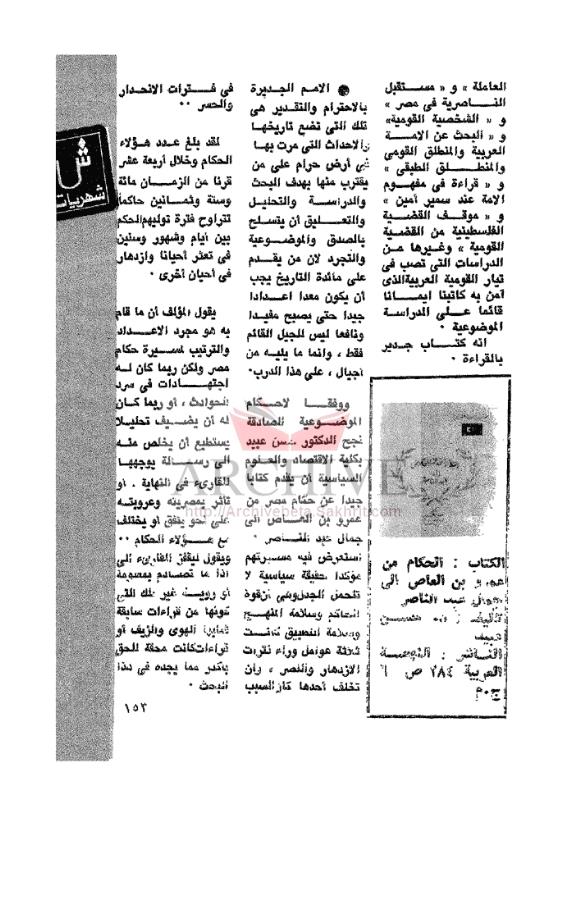 العاملة » و « مستقبل
الناصرية فى مصر »
و « الشخصية القومية»
و « البحث عن الامة
العربية والمنطلق القومى
والمنطلق الطبقى »
و « قراءة فى مفهوم
الامة عند سمير أمين »
و « موقف القضية
الفلسطينية من القضية
القومية » وغيرها من
الدراسات التى تصب فى
تيار القومية العربيةالذى
آمن به كاتبنا ايمانا
قائما على الدراسة
الموضوعية ٠
انه كتاب جدير
بالقراءة ٠
الكتاب : الحكام من
عمرو بن العاص الى
جمال عبد الناصر
تأليف : حسين
عبيد
الناشر : النهضة
العربية ٢٨٤ ص
● الامم الجديرة
بالاحترام والتقدير هى
تلك التى تضع تاريخها
والاحداث التى مرت بها
فى أرض حرام على من
يقترب منها بهدف البحث
والدراسة والتحليل
والتعليق أن يتسلح
بالصدق والموضوعية
والتجرد لان من يقدم
على مائدة التاريخ يجب
أن يكون معدا اعدادا
جيدا حتى يصبح مفيدا
ونافعا ليس للجيل القائم
فقط ، وانما ما يليه من
أجيال ، على هذا الدرب٠
ووفقا لاحكام
الموضوعية الصادقة
نجح الدكتور حسن عبيد
بكلية الاقتصاد والعلوم
السياسية أن يقدم كتابا
جيدا عن حكام مصر من
عمرو بن العاص الى
جمال عبد الناصر ٠
استعرض فيه مسيرتهم
مؤكدا حقيقة سياسية لا
تحتمل الجدل وهى أن قوة
الحاكم وسلامة المنهج
وسلامة التطبيق كانت
ثلاثة عوامل وراء فترات
الازدهار والنصر ، وان
تخلف أحدها كان السبب
فى فترات الانحدار
والخسر ٠٠
لقد بلغ عدد هؤلاء
الحكام وخلال أربعة عشر
قرنا من الزمان مائة
وستة وثمانين حاكما
تتراوح فترة توليهم الحكم
بين أيام وشهور وسنين
فى تعثر أحيانا وازدهار
فى أحيان أخرى ٠
يقول المؤلف أن ما قام
به هو مجرد الاعداد
والترتيب لمسيرة حكام
مصر ولكن ربما كان له
اجتهادات فى سرد
الحوادث ، أو ربما كان
له أن يضيف تحليلا
يستطيع أن يخلص منه
الى رسالة يوجهها
للقارىء فى النهاية ٠ أو
تأثر بمصريته وعروبته
على نحو يتفق أو يختلف
مع هؤلاء الحكام ٠٠
ويقول ليغفر القارىء لى
اذا ما تصادم بمعلومة
أو رواية غير تلك التى
كونها من قراءات سابقة
الهوى والزيف أو
قراءات كانت محقة للحق
بأكثر مما يجده فى هذا
البحث ٠
ش
شهريات
١٥٣
ARCHIVE
http://Archivebeta.Sakhrit.com